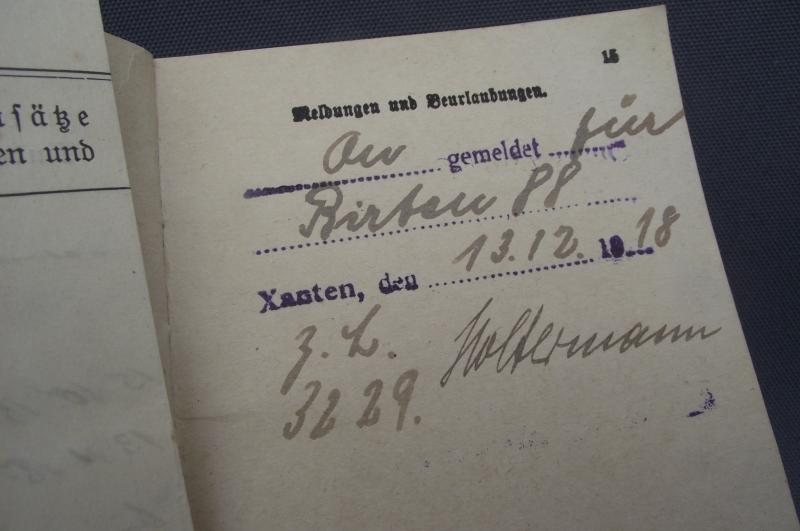 sätze
en und
15
Meldungen und Beurlaubungen.
An gemeldet für
Birten 88
13.12. 18
Xanten, den 19
z. L. Holtermann
3229.